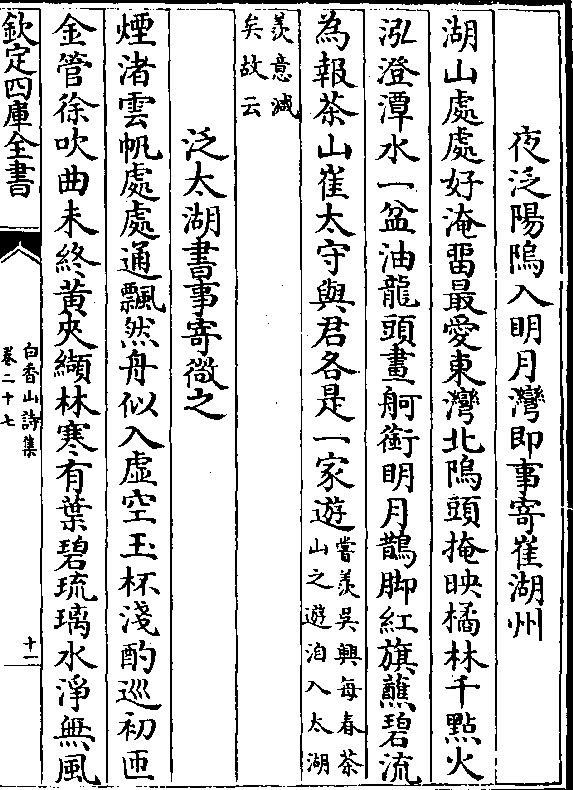 夜泛陽隖入明月灣即事寄崔湖州
湖山處處好淹畱最愛東灣北隖頭掩映橘林千㸃火
泓澄潭水一盆油龍頭畫舸銜明月鵲脚紅旗蘸碧流
為報茶山崔太守與君各是一家遊嘗羨吳興每春茶山之遊洎入太湖
羨意減矣故云
泛太湖書事寄微之
煙渚雲帆處處通飄然舟似入虛空玉杯淺酌巡初匝
金管徐吹曲未終黃夾纈林寒有葉碧琉璃水淨無風
欽定四庫全書
白香山詩集
卷二十七
十一